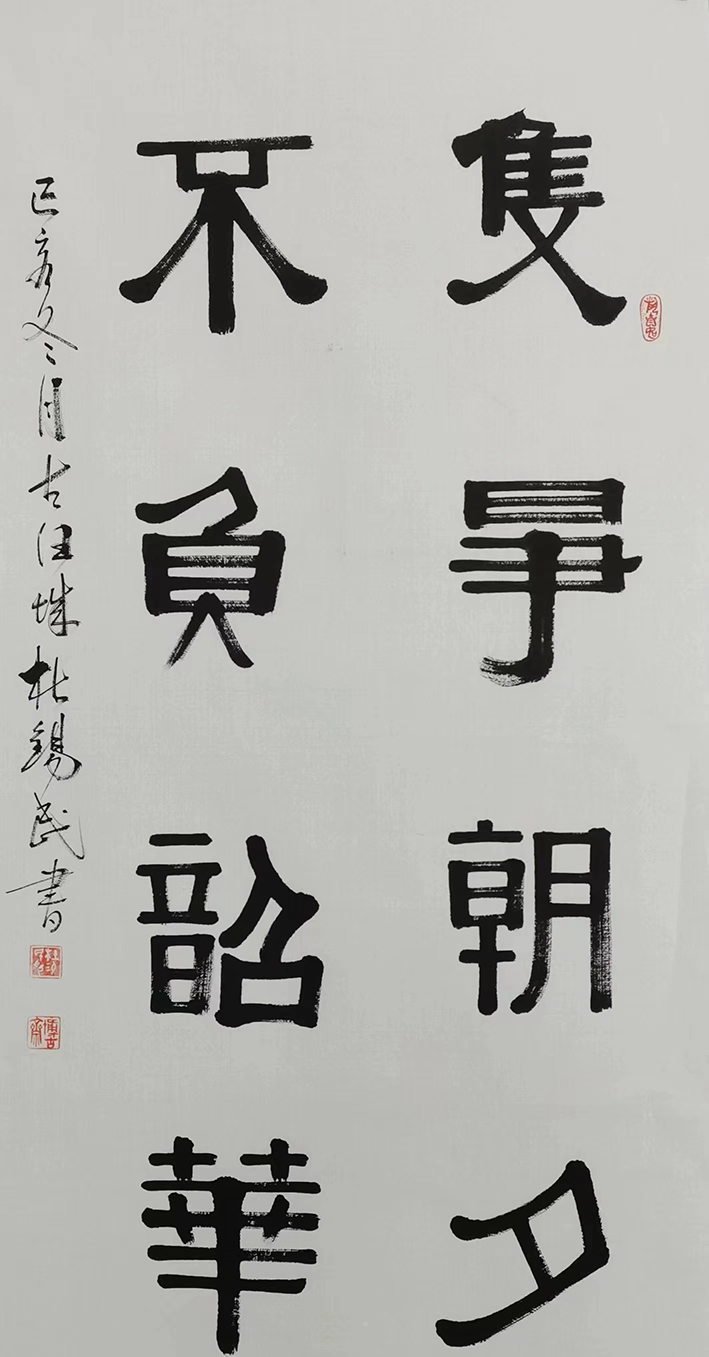 隻爭朝夕
不負韶華
己亥冬月古城杜錫民書